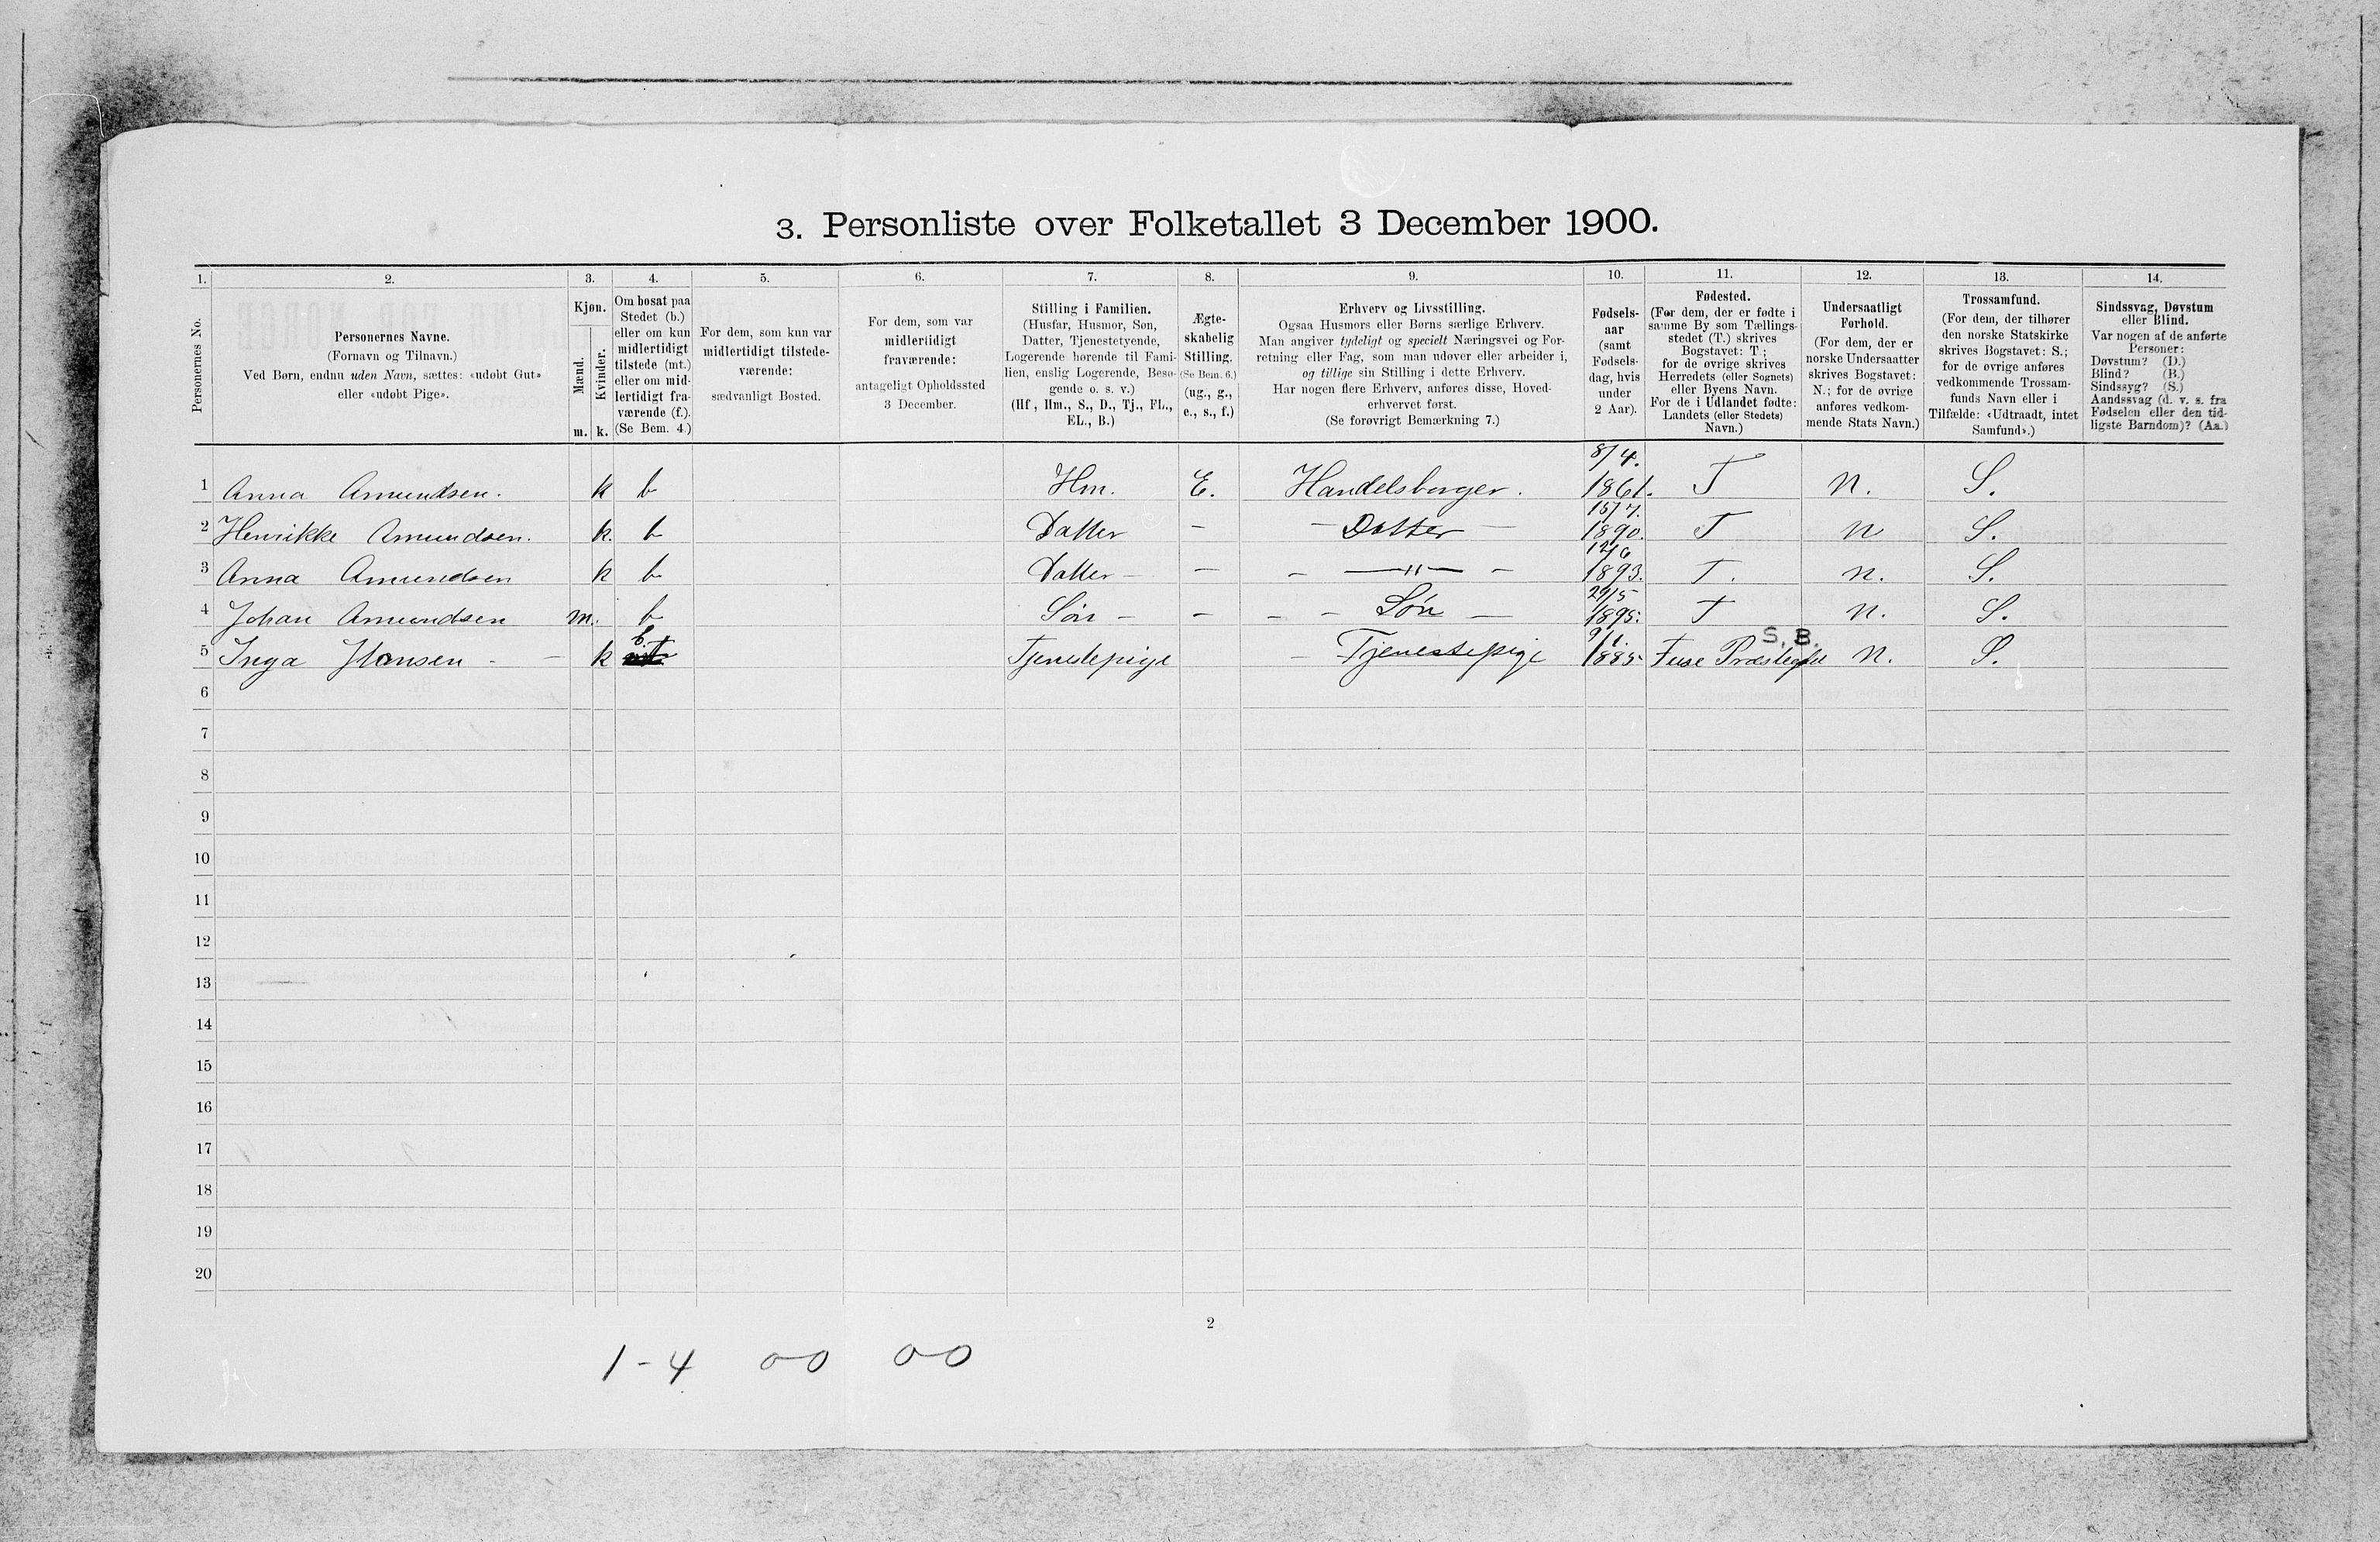 3. Personliste over Folketallet 3 December 1900.
1. 2. 3. 4. 5. 6. 7. 8. 9. 10. 11. 12. 13. 14.
Personernes No.
Personernes Navne.
(Fornavn og Tilnavn.)
Ved Børn, endnu uden Navn, sættes: «udøbt Gut»
eller «udøbt Pige».
Kjøn.
Mænd.
Kvinder.
m. k.
Om bosat paa
Stedet (b.)
eller om kun
midlertidigt
tilstede (mt.)
eller om mid-
lertidigt fra-
værende (f.).
(Se Bem. 4.)
For dem, som kun var
midlertidigt tilstede-
værende:
sædvanligt Bosted.
For dem, som var
midlertidigt
fraværende:
antageligt Opholdssted
3 December.
Stilling i Familien.
(Husfar, Husmor, Søn,
Datter, Tjenestetyende,
Logerende hørende til Fami-
lien, enslig Logerende, Besø-
gende o. s. v.)
(Hf, Hm., S., D., Tj., FL.,
EL., B.)
Ægte-
skabelig
Stilling.
(Se Bem. 6.)
(ug., g.,
e., s., f.)
Erhverv og Livsstilling.
Ogsaa Husmors eller Børns særlige Erhverv.
Man angiver tydeligt og specielt Næringsvei og For-
retning eller Fag, som man udøver eller arbeider i,
og tillige sin Stilling i dette Erhverv.
Har nogen flere Erhverv, anføres disse, Hoved-
erhvervet først.
(Se forøvrigt Bemærkning 7.)
Fødsels-
aar
(samt
Fødsels-
dag, hvis
under
2 Aar).
Fødested.
(For dem, der er fødte i
samme By som Tællings-
stedet (T.) skrives
Bogstavet: T.;
for de øvrige skrives
Herredets (eller Sognets)
eller Byens Navn.
For de i Udlandet fødte:
Landets (eller Stedets)
Navn.)
Undersaatligt
Forhold.
(For dem, der er
norske Undersaatter
skrives Bogstavet:
N.; for de øvrige
anføres vedkom-
mende Stats Navn.)
Trossamfund.
(For dem, der tilhører
den norske Statskirke
skrives Bogstavet: S.;
for de øvrige anføres
vedkommende Trossam-
funds Navn eller i
Tilfælde: «Udtraadt, intet
Samfund».)
Sindssvag, Døvstum
eller Blind.
Var nogen af de anførte
Personer:
Døvstum? (D.)
Blind? (B.)
Sindssyg? (S.)
Aandssvag (d. v. s. fra
Fødselen eller den tid-
ligste Barndom)? (Aa.)
1 Anna Amundsen. k b Hm. E. Handelsborger. 8/4. 1861. T N. S.
2 Henrikke Amundsen. k. b Datter - - Datter - 15/7. 1890. T N S.
3 Anna Amundsen k b Datter - - - —"— - 12/6 1893. T. N. S.
4 Johan Amundsen m. b Søn - - - - Søn - 29/5 1895. T N. S.
5 Inga Hansen - - k b. Tjenestepige - Tjenestepige 9/1. 1885 Fuse Præstegjld S. B. N. S.
6
7
8
9
10
11
12
13
14
15
16
17
18
19
20
2
1-4 0-0 0-0